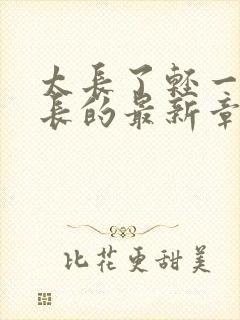 太长了轻一
长的最新章
比花更甜美